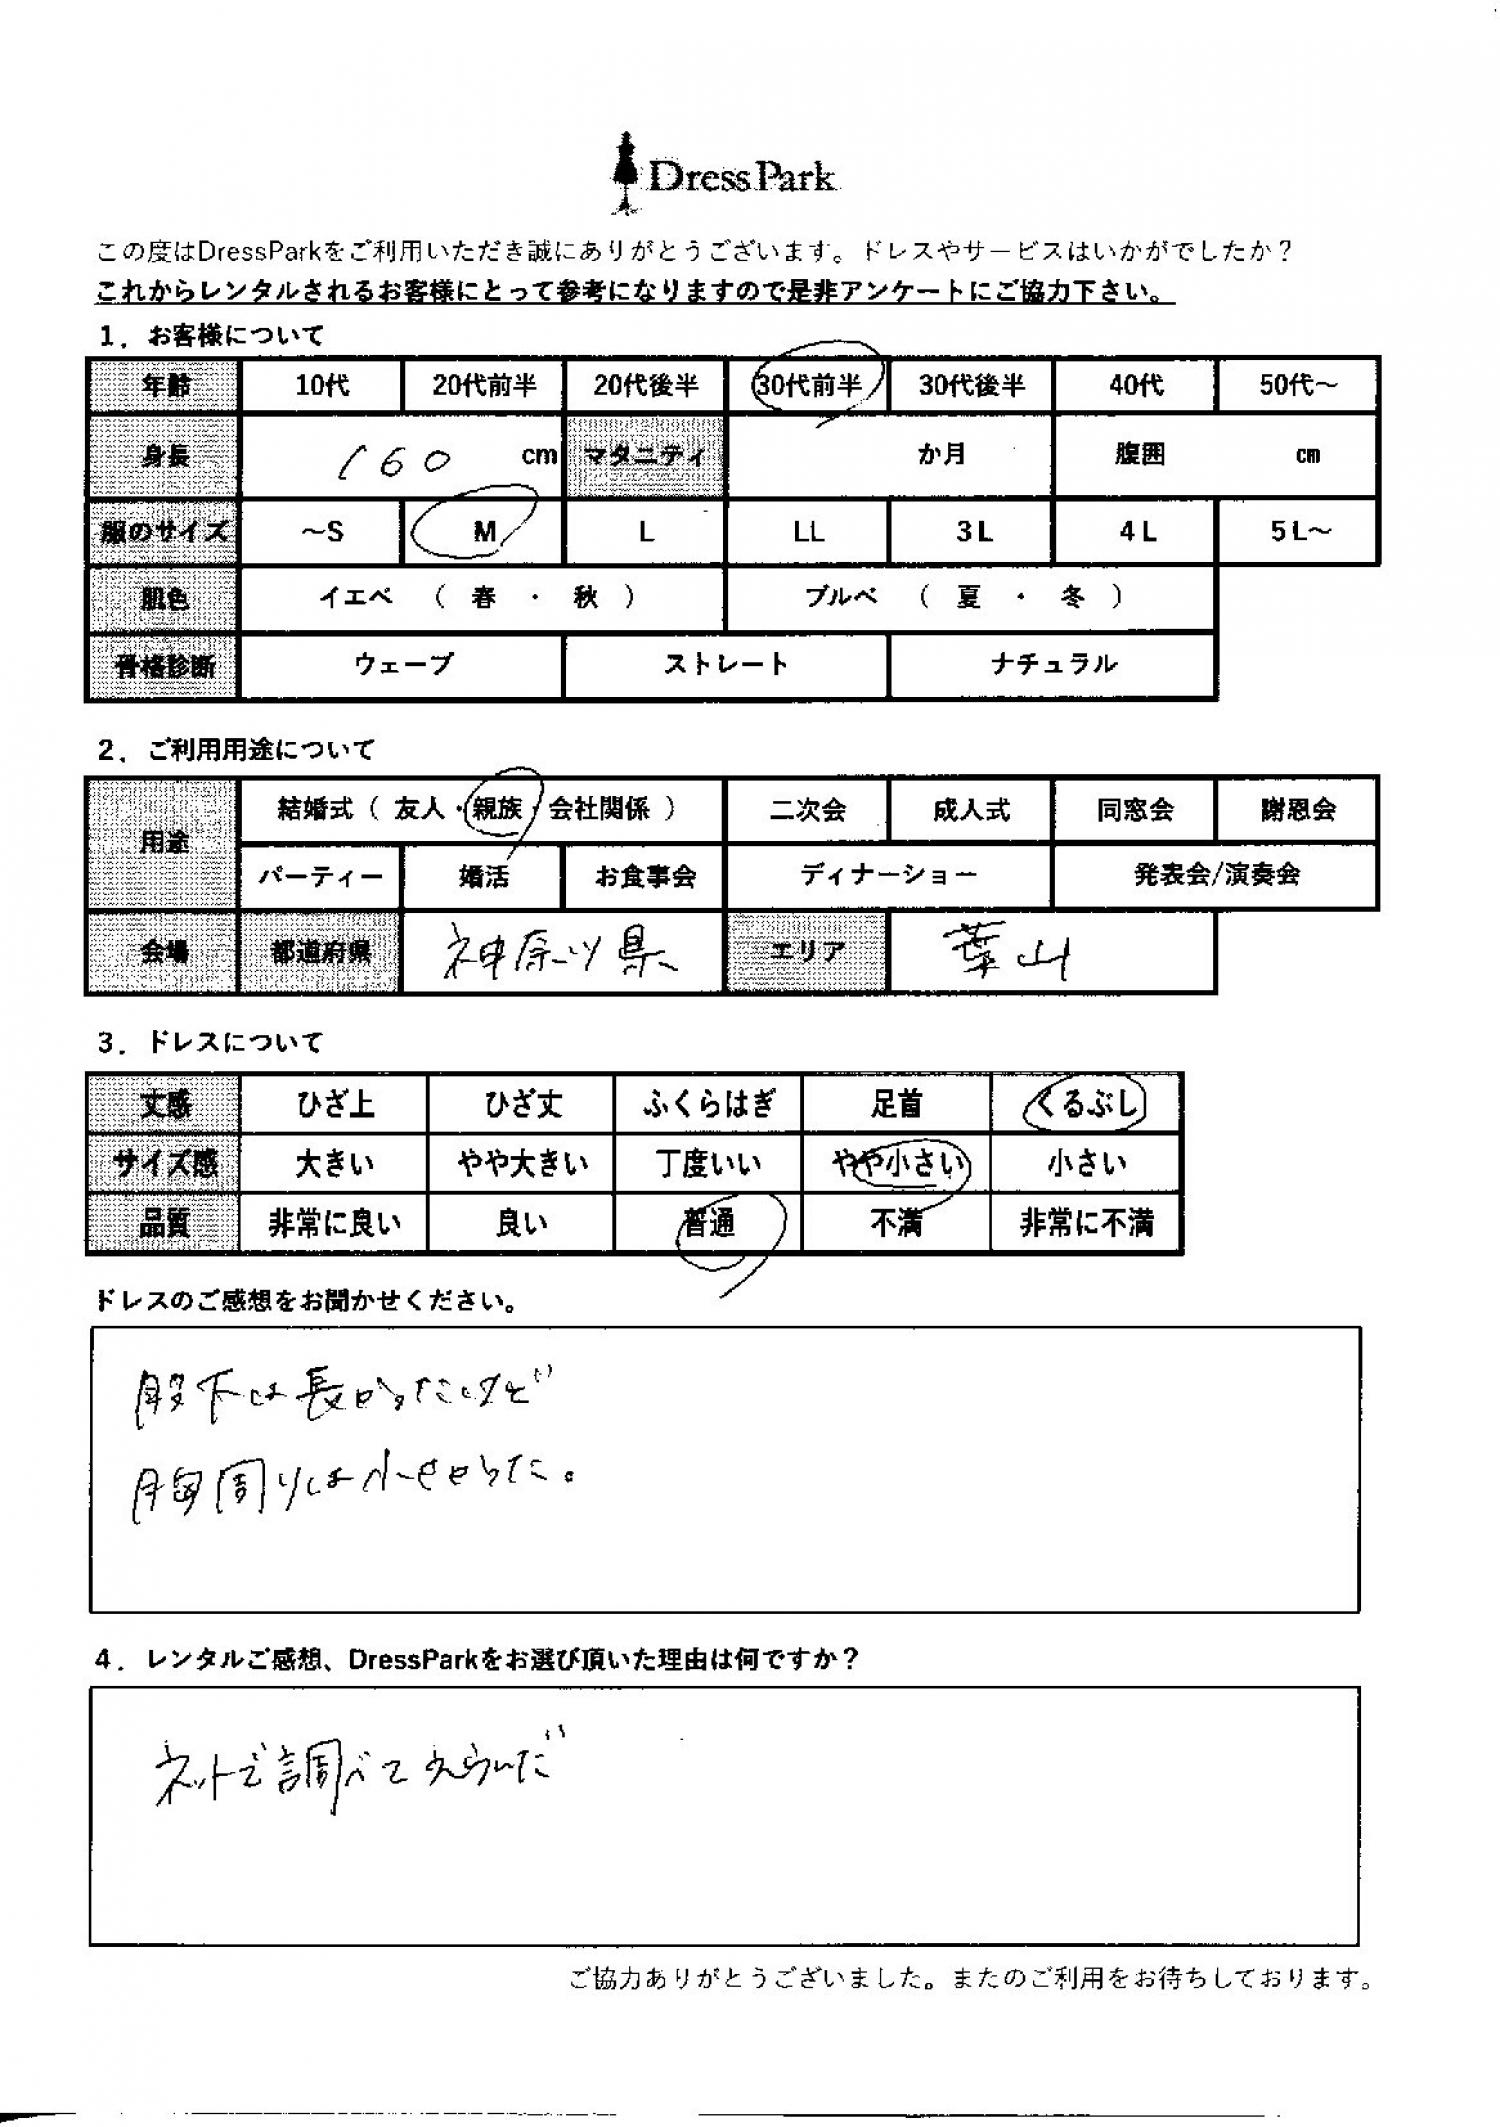 DressPark
この度はDressParkをご利用いただき誠にありがとうございます。ドレスやサービスはいかがでしたか？
これからレンタルされるお客様にとって参考になりますので是非アンケートにご協力下さい。
1．お客様について
年齢 10代 20代前半 20代後半 30代前半 30代後半 40代 50代～
身長 160 cm マタニティ か月 腹囲 cm
服のサイズ ～S M L LL 3L 4L 5L～
肌色 イエベ （ 春 ・ 秋 ） ブルベ （ 夏 ・ 冬 ）
骨格診断 ウェーブ ストレート ナチュラル
2．ご利用用途について
用途 結婚式（ 友人・親族・会社関係 ） 二次会 成人式 同窓会 謝恩会
パーティー 婚活 お食事会 ディナーショー 発表会/演奏会
会場 都道府県 神奈川県 エリア 葉山
3．ドレスについて
丈感 ひざ上 ひざ丈 ふくらはぎ 足首 くるぶし
サイズ感 大きい やや大きい 丁度いい やや小さい 小さい
品質 非常に良い 良い 普通 不満 非常に不満
ドレスのご感想をお聞かせください。
股下は長かったけど
胸周りは小さかった。
4．レンタルご感想、DressParkをお選び頂いた理由は何ですか？
ネットで調べてえらんだ
ご協力ありがとうございました。またのご利用をお待ちしております。